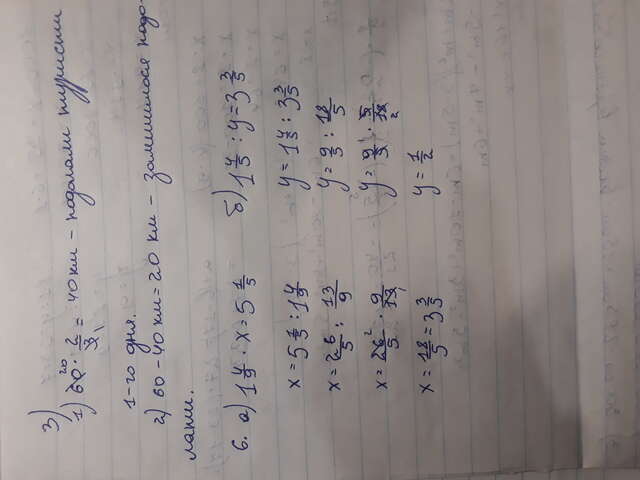 3)
1) 60 20 · 2/3 1 = 40 км – подолали туристи
1-го дня.
2) 60 – 40 км = 20 км – залишилося подо-
лати.
6. а) 1 4/9 · x = 5 1/5
x = 5 1/5 : 1 4/9
x = 26/5 : 13/9
x = 26 2/5 · 9/13 1
x = 18/5 = 3 3/5
б) 1 4/5 : y = 3 3/5
y = 1 4/5 : 3 3/5
y = 9/5 : 18/5
y = 9 1/5 · 5/18 2
y = 1/2